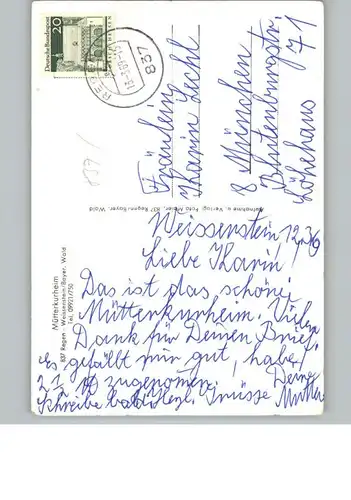 Deutsche Bundespost
20
837
Fräulein
Karin Lechl
8 München
Blutenburgstr.
71
Aufnahme u. Verlag: Foto 837 Regen/Bayer. Wald
Mütterkurheim
837 Regen - Weissenstein/Bayer. Wald
Tel. 09921/750
Weissenstein,
Liebe Karin!
Das ist das schöne
Mütterkurheim. Vielen
Dank für Deinen Brief.
es gefällt mir gut, habe
2 1/2 zugenommen. Deine
Schreibe bald Grüsse Mutter